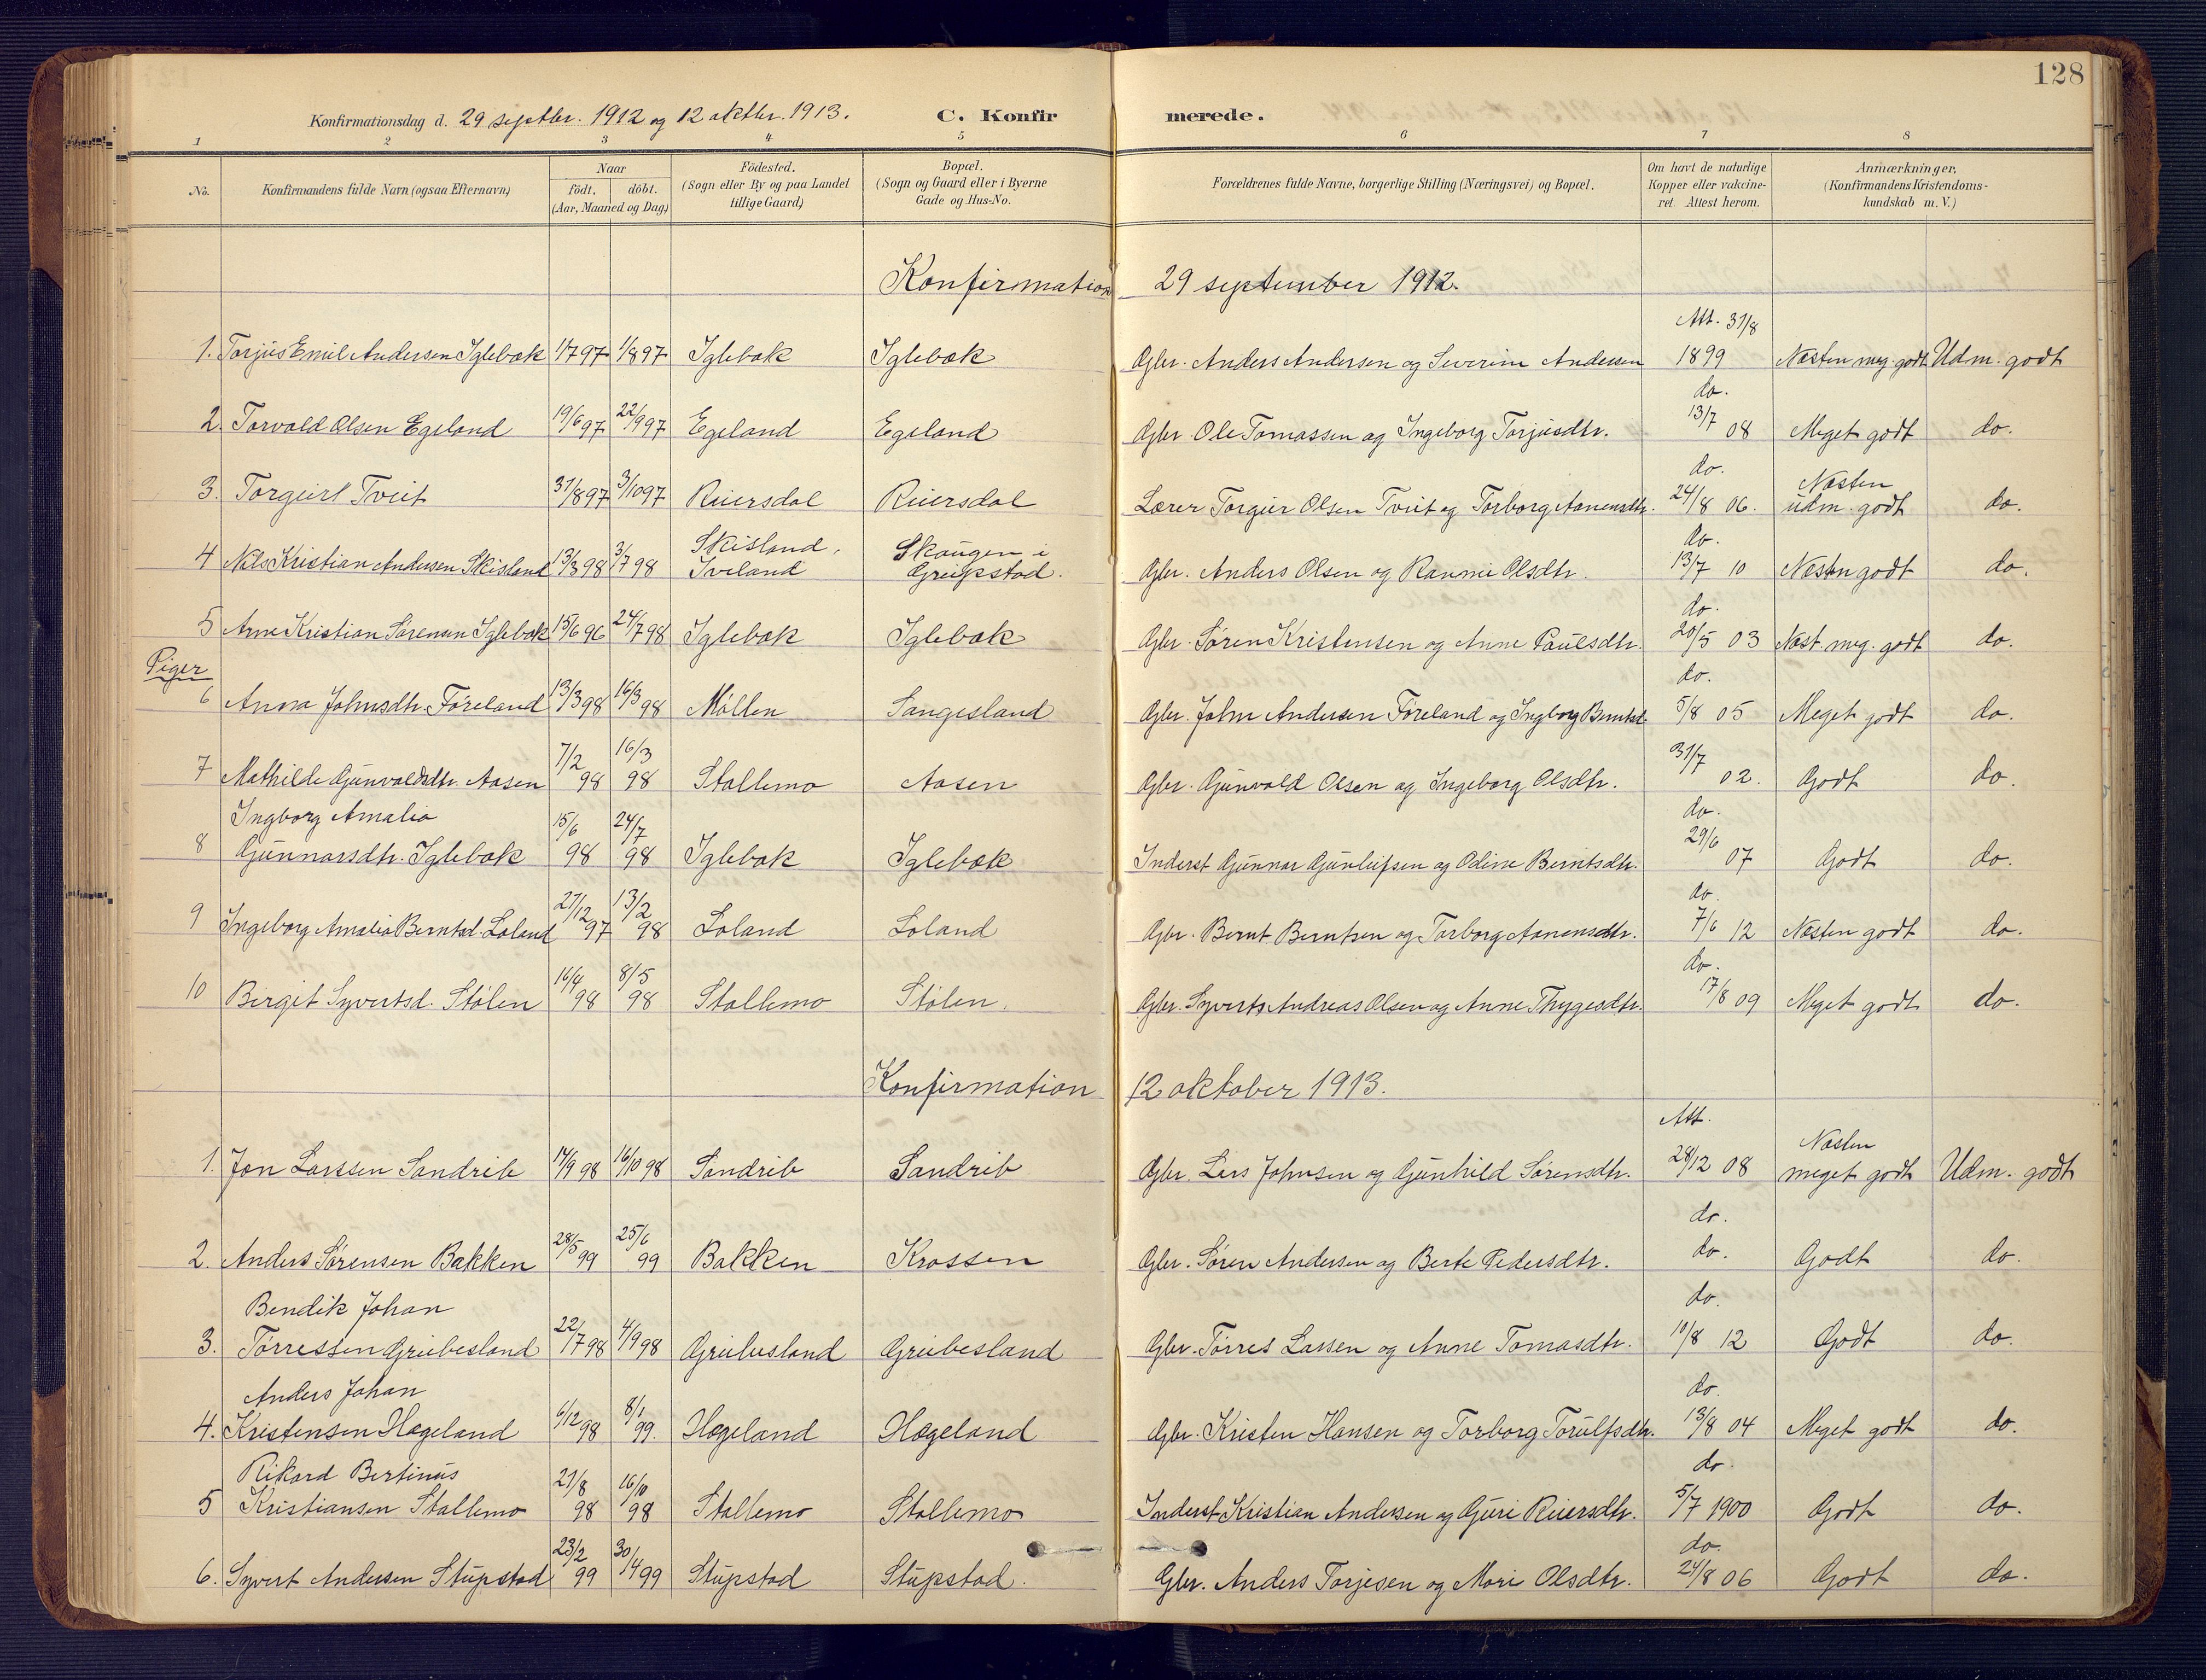 128
Konfirmationsdag d. 29 septbr. 1912 og 12 oktbr. 1913.
C. Konfirmerede.
1 2 3 4 5 6 7 8
No.
Konfirmandens fulde Navn (ogsaa Efternavn)
Naar
født. døbt.
(Aar, Maaned og Dag)
Fødested.
(Sogn eller By og paa Landet
tillige Gaard)
Bopæl.
(Sogn og Gaard eller i Byerne
Gade og Hus-No.
Forældrenes fulde Navne, borgerlige Stilling (Næringsvei) og Bopæl.
Om havt de naturlige
Kopper eller vakcine-
ret. Attest herom.
Anmærkninger,
(Konfirmandens Kristendoms-
kundskab m. V.)
Konfirmation 29 september 1912.
Att. 31/8
1. Torjus Emil Andersen Iglebæk 1/7 97 1/8 97 Iglebæk Iglebæk Gbr. Anders Andersen og Severine Andersen 1899 Næsten meg. godt Udm. godt
do.
2. Torvald Olsen Egeland 19/6 97 22/9 97 Egeland Egeland Gbr. Ole Tomassen og Ingeborg Torjusdtr. 13/7 08 Meget godt do.
do. Næsten
3. Torgeirt Tveit 31/8 97 3/10 97 Reiersdal Reiersdal Lærer Torgeir Olsen Tveit og Torborg Aanensdtr. 24/8 06. udm. godt do.
Skisland, Skaugen i do.
4 Nils Kristian Andersen Skisland 13/3 98 3/7 98 Iveland Greipstad. Gbr. Anders Olsen og Ranni Olsdtr. 13/7 10 Næsten godt do.
do.
5 Arne Kristian Sørensen Iglebæk 15/6 96 24/7 98 Iglebæk Iglebæk Gbr. Søren Kristensen og Anne Paulsdtr. 20/5 03 Næst. meg. godt do.
Piger do.
6 Anna Johnsdtr. Føreland 13/3 98 16/3 98 Møllen Sangesland Gbr. John Andersen Føreland og Ingborg Berntsd. 5/8 05 Meget godt do.
7 Mathilde Gunvaldsdtr. Aasen 7/2 98 16/3 98 Stallemo Aasen Gbr. Gunvald Olsen og Ingeborg Olsdtr. 31/7 02. Godt do.
Ingborg Amalia do.
8 Gunnarsdtr. Iglebæk 15/6 98 24/7 98 Iglebæk Iglebæk Inderst Gunnar Gunleifsen og Odine Berntsdtr. 29/6 07 Godt do.
do.
9 Ingeborg Amalia Berntsd. Løland 27/12 97 13/2 98 Løland Løland Gbr. Bernt Berntsen og Torborg Aanensdtr. 7/6 12 Næsten godt do.
do.
10 Birgit Syvertsd. Stølen 16/4 98 8/5 98 Stallemo Stølen. Gbr. Syverts Andreas Olsen og Anne Thygesdtr. 17/8 09 Meget godt do.
Konfirmation 12 oktober 1913.
Att. Næsten
1. Jon Larssen Sandrib 14/9 98 16/10 98 Sandrib Sandrib Gbr. Lars Johnsen og Gunhild Sørensdtr. 28/12 08 meget godt Udm. godt
do.
2. Anders Sørensen Bakken 28/5 99 25/6 99 Bakken Krossen Gbr. Søren Andersen og Berte Pedersdtr. do. Godt do.
Bendik Johan do.
3. Tørressen Greibesland 22/7 98 4/9 98 Greibesland Greibesland Gbr. Tørres Larsen og Anne Tomasdtr. 10/8 12 Godt do.
Anders Johan do.
4. Kristensen Hægeland 6/12 98 8/1 99. Hægeland Hægeland Gbr. Kristen Hansen og Torborg Torulfsdtr. 13/8 04 Meget godt do.
Rikard Bertinus do.
5 Kristiansen Stallemo 21/8 98 16/10 98 Stallemo Stallemo Inderst Kristian Andersen og Guri Reiersdtr. 5/7 1900 Godt do.
do.
6. Syvert Andersen Stupstad 23/2 99 30/4 99 Stupstad Stupstad. Gbr. Anders Torjesen og Mari Olsdtr. 24/8 06 Godt do.